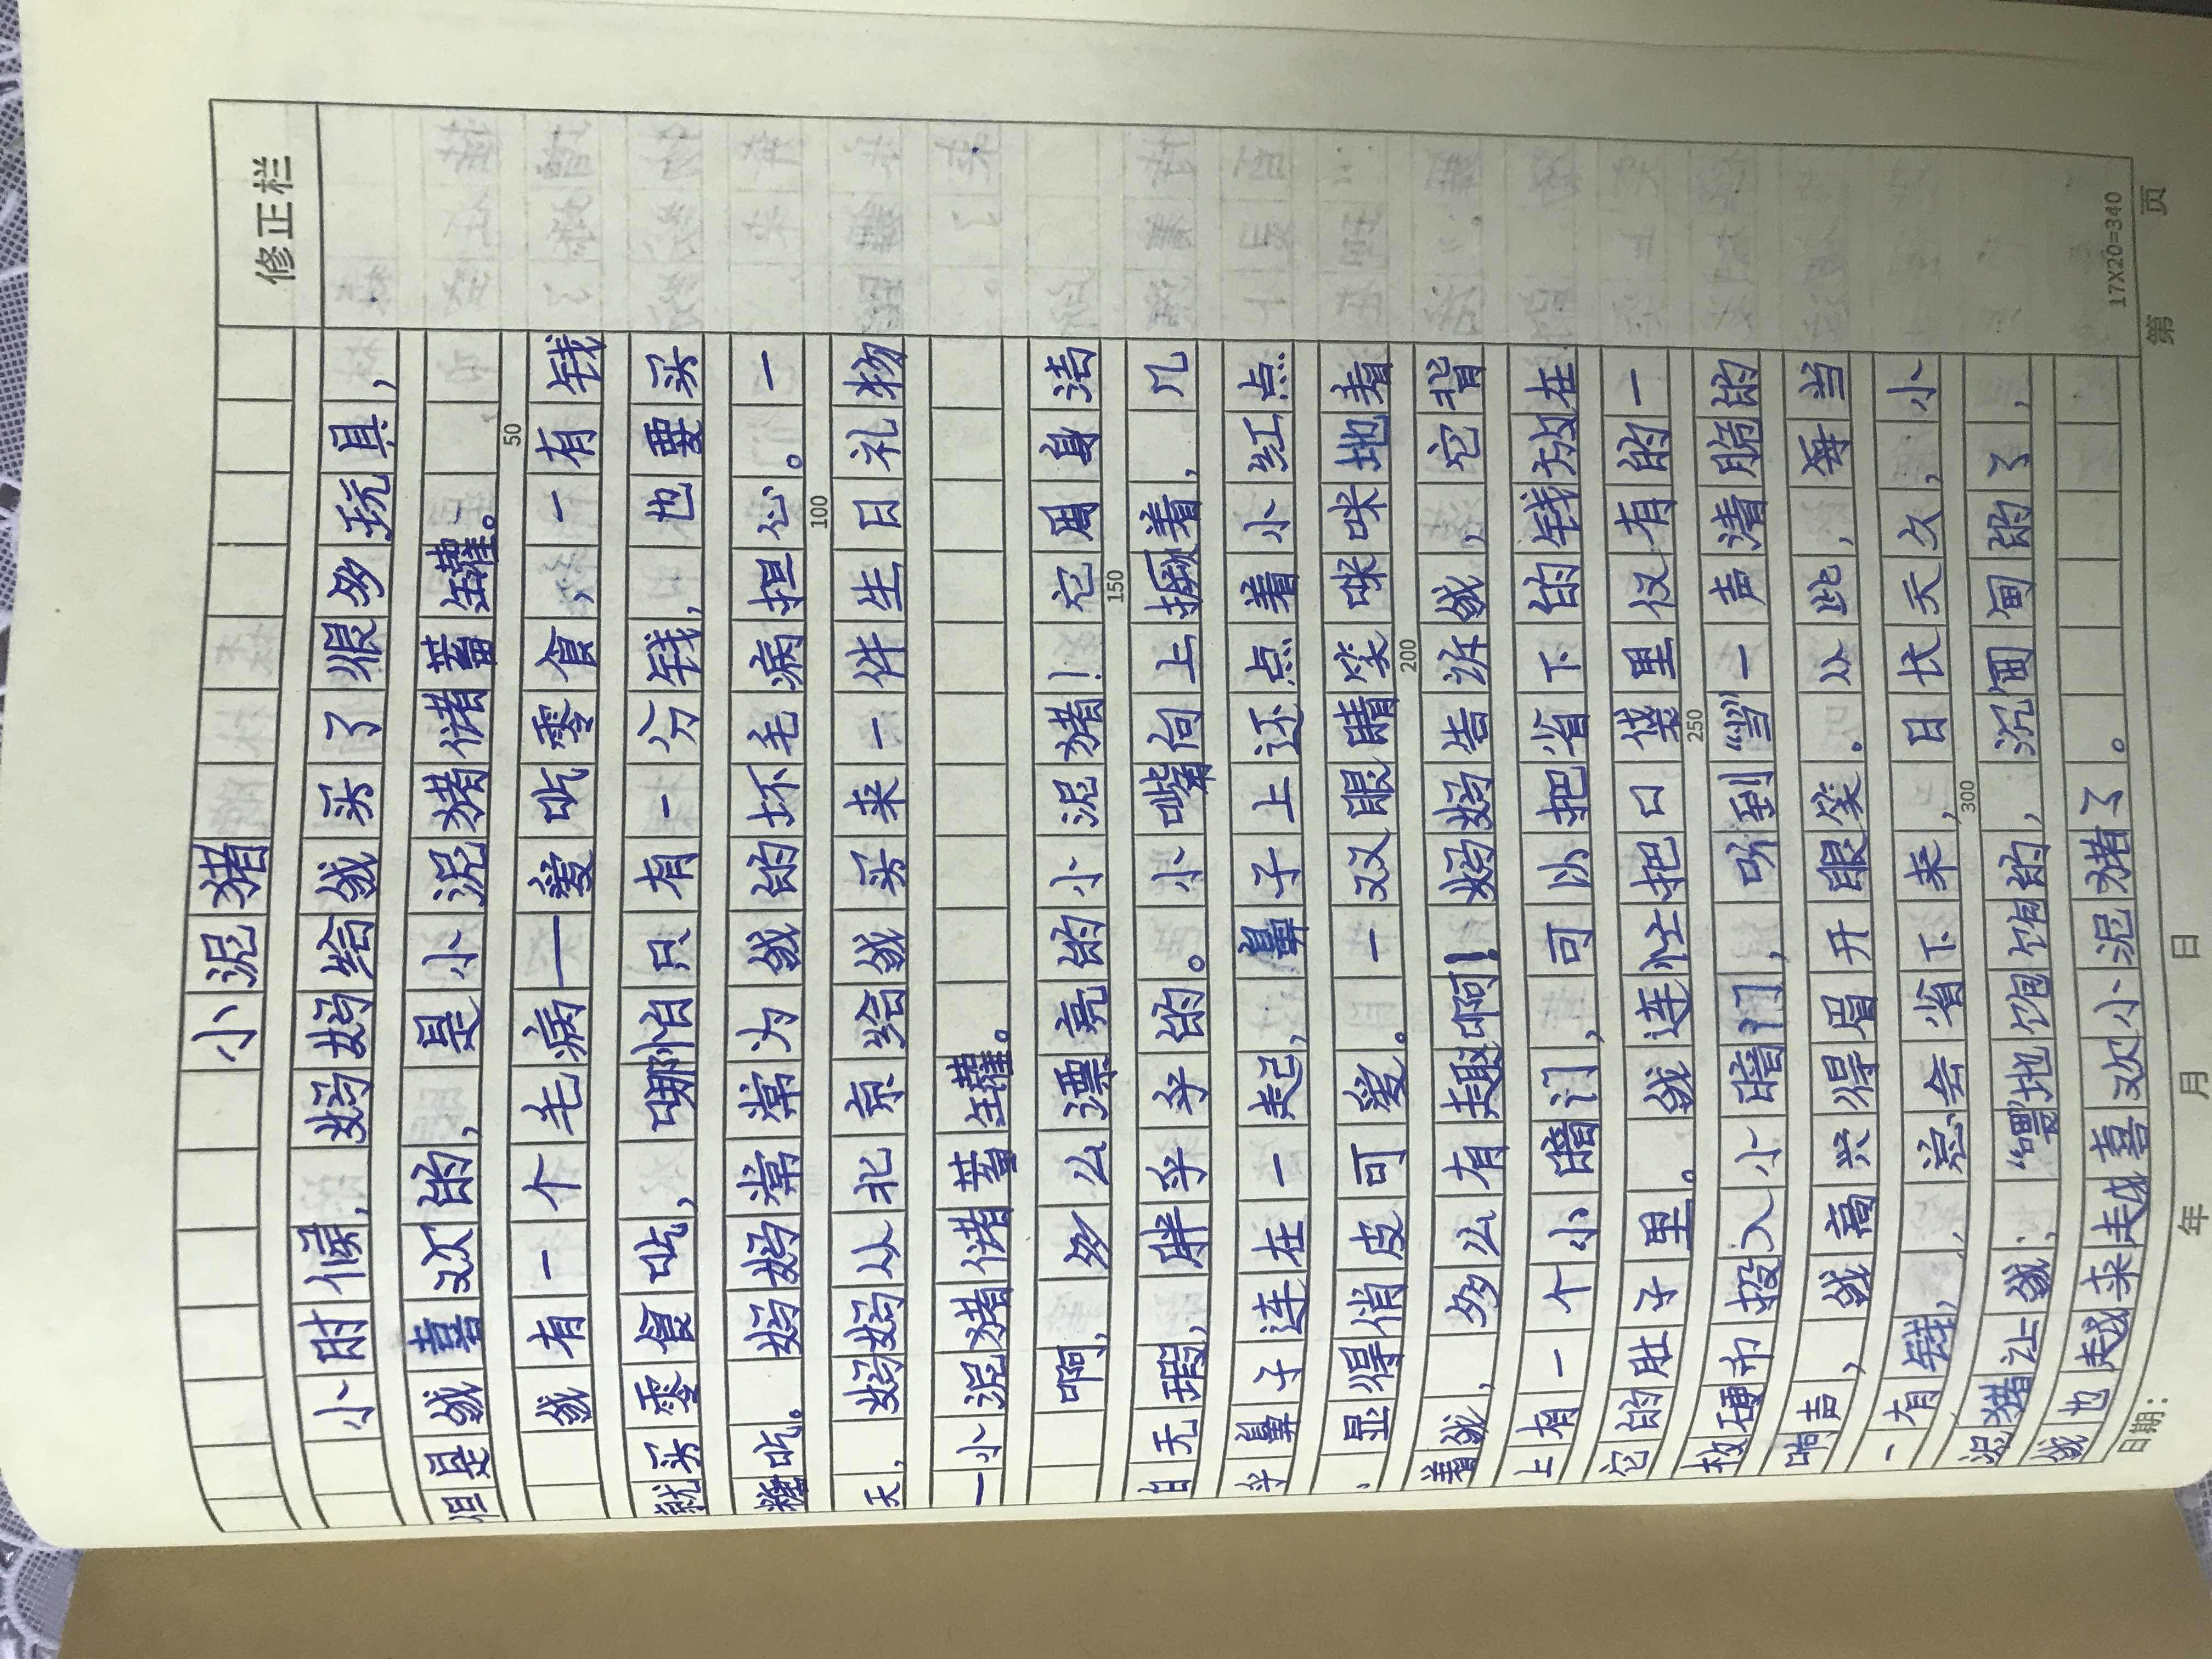 修正栏
小泥猪
小时候，妈妈给我买了很多玩具，
但是我喜欢的，是小泥猪储蓄罐。
50
我有一个毛病——爱吃零食，一有钱
就买零食吃，哪怕只有一分钱，也要买
糖吃。妈妈常常为我的坏毛病担心。一
100
天，妈妈从北京给我买来一件生日礼物
—小泥猪储蓄罐。
啊，多么漂亮的小泥猪！它周身洁
150
白无瑕，胖乎乎的。小嘴向上撅着，几
乎鼻子连在一起，鼻子上还点着小红点
，显得俏皮可爱。一双眼睛笑咪咪地看
200
着我，多么有趣啊！妈妈告诉我，它背
上有一个小暗门，可以把省下的钱放在
它的肚子里。我连忙把口袋里仅有的一
250
枚硬币投入小暗门，听到“当”一声清脆的
响声，我高兴得眉开眼笑。从此，每当
一有钱，总会省下来，日长天久，小
300
泥猪让我“喂”地饱饱的，沉甸甸的了，
我也越来越喜欢小泥猪了。
17X20=340
日期： 年 月 日 第 页